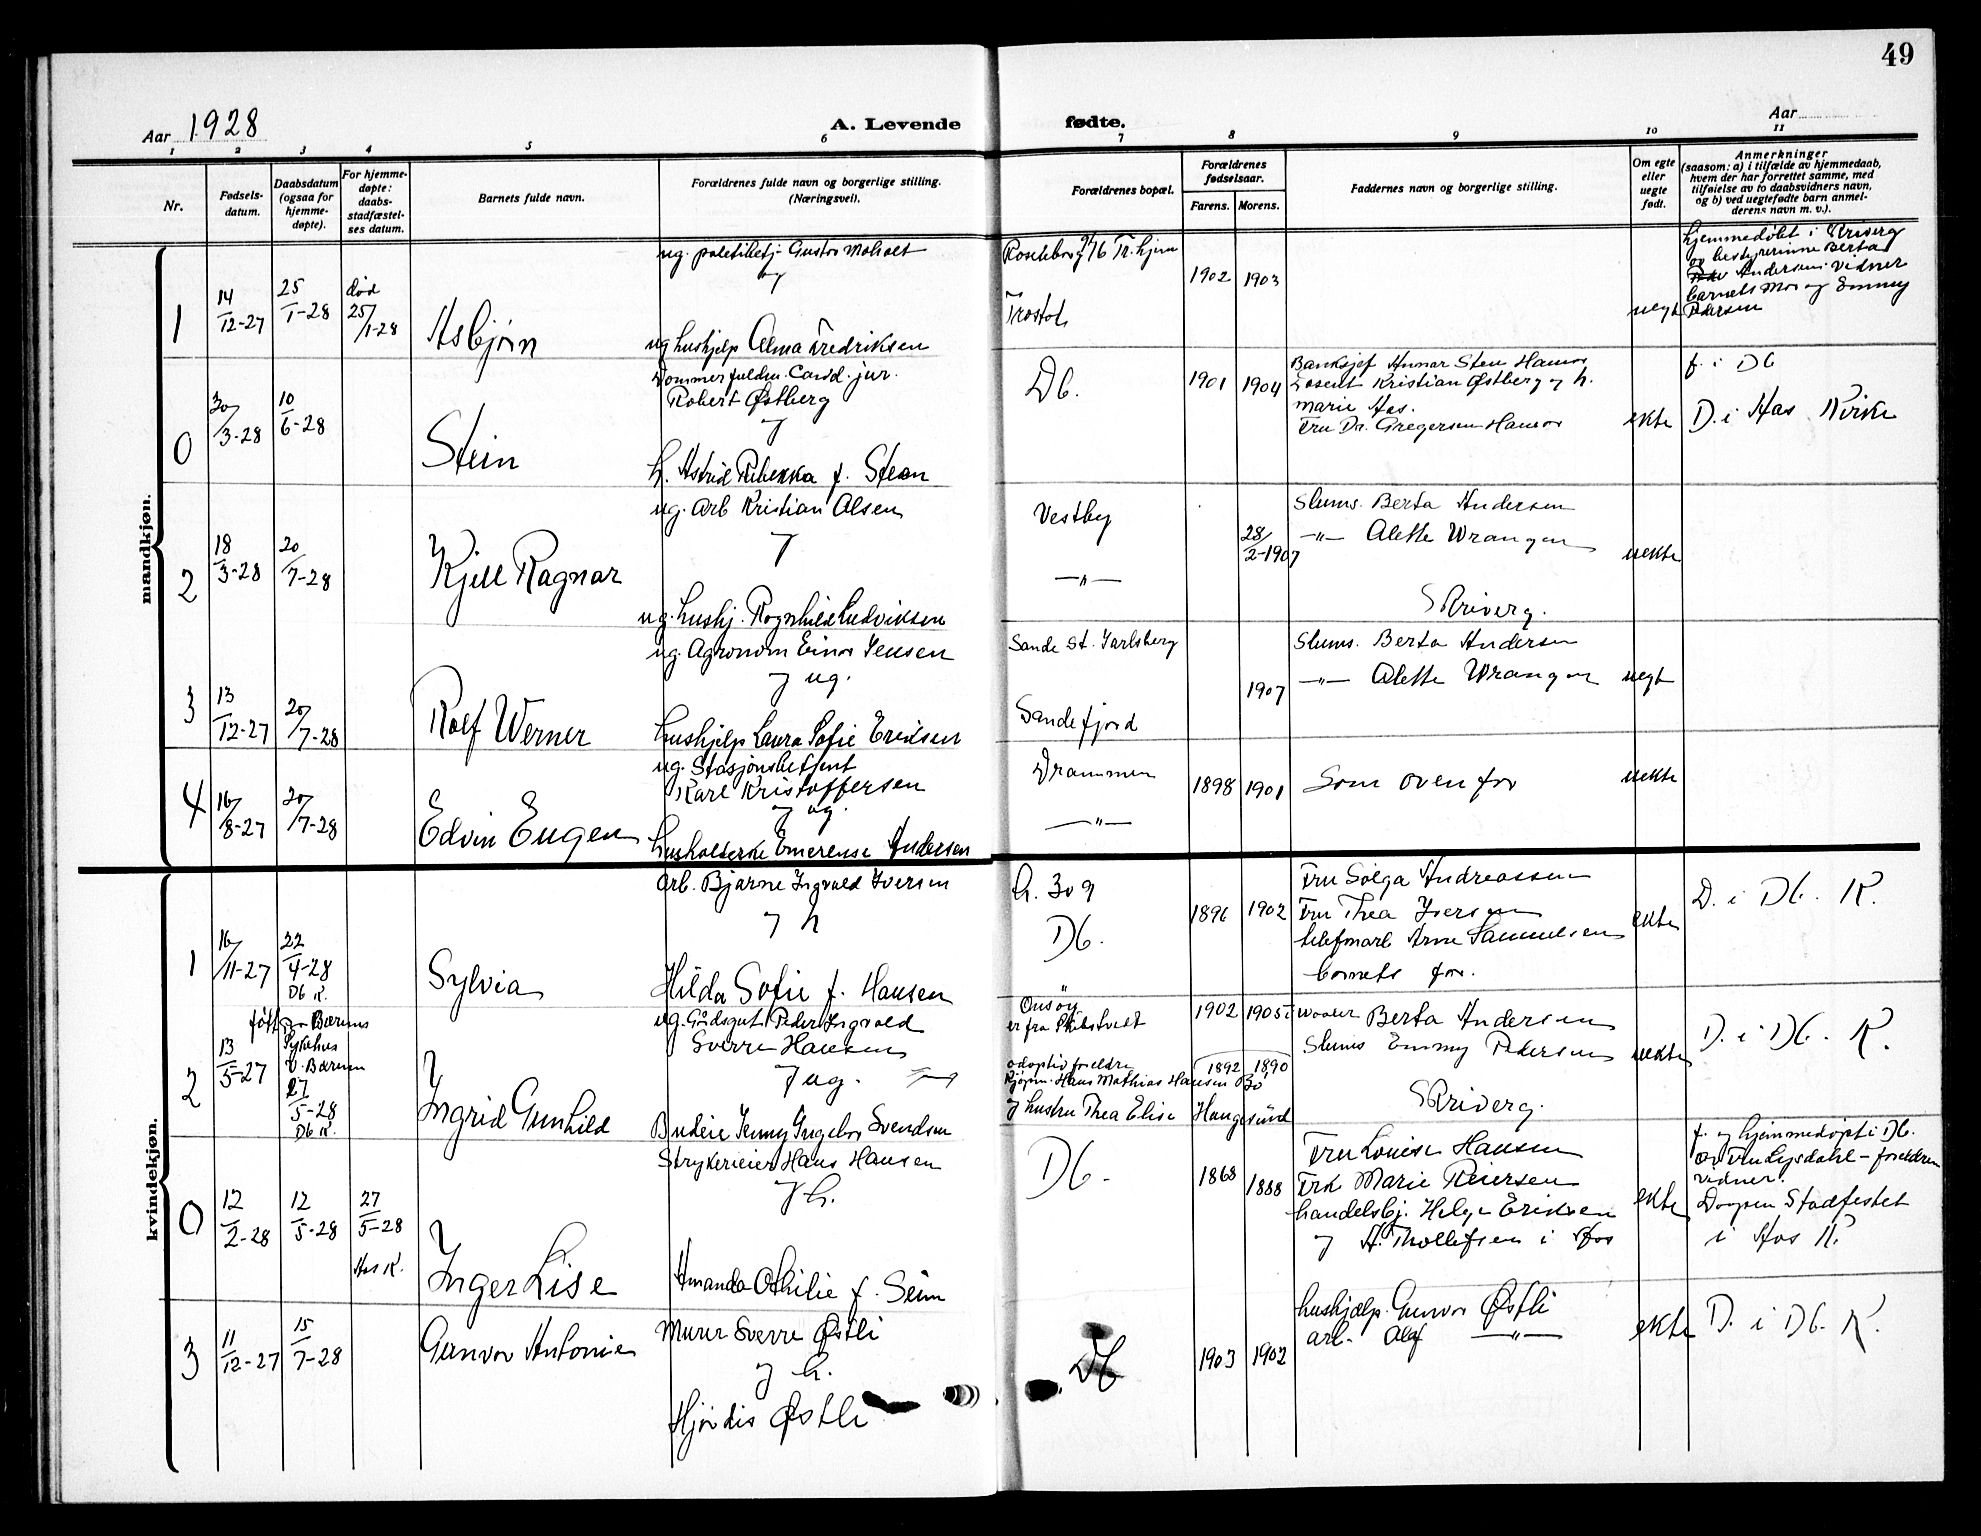 49
Aar 1928
A. Levende fødte.
Aar
1 2 3 4 5 6 7 8 9 10 11
Nr.
Fødsels-
datum.
Daabsdatum
(ogsaa for
hjemme-
døpte).
For hjemme-
døpte:
daabs-
stadfæstel-
ses datum.
Barnets fulde navn.
Forældrenes fulde navn og borgerlige stilling.
(Næringsvei).
Forældrenes bopæl.
Forældrenes
fødselsaar.
Farens. Morens.
Faddernes navn og borgerlige stilling.
Om egte
eller
uegte
født.
Anmerkninger
(saasom: a) i tilfælde av hjemmedaab,
hvem der har forrettet samme, med
tilføielse av to daabsvidners navn,
og b) ved uegtefødte barn anmel-
derens navn m. v.).
mandkjøn.
1
14/12-27
25/1-28
død
25/1-28
Asbjørn
ug. Gustav Moholt
og
ug hushjelp Alma Fredriksen
Tr.hjem
1902 1903
uegt
hjemmedøbt i
og bestyrerinne Berta
Andersen vidner
barnets Mor og Emmy
Pedersen
0
30/3-28
10/6-28
Stein
Dommerfuldm. Cand. jur.
Robert Østberg
og
h. Astrid Rebekka f. Steen
Db.
1901 1904
Banksjef Steen Hamar
Kristian Østberg og h.
Marie Aas.
Fru Dr. Gregersen Hamar
ekte
f. i Db
D. i Aas Kirke
2
18/3-28
20/7-28
Kjell Ragnar
ug. Arb Kristian Olsen
og
ug. hushj. Ragnhild Ludviksen
Vestby
—"—
28/2-1907
Slums. Berta Andersen
—"— Alette Wrangen
uekte
3
13/12-27
20/7-28
Rolf Werner
ug. Agronom Einar Jensen
og ug.
hushjelp Laura Sofie Eriksen
Sande st. Jarlsberg
Sandefjord
1907
Slums. Berta Andersen
—"— Alette Wrangen
uegt
4
16/8-27
20/7-28
Edvin Eugen
ug. Stasjonsbetjent
Karl Kristoffersen
og ug.
husholderske Emerense Andersen
Drammen
—"—
1898 1901
Som ovenfor
uekte
kvindekjøn.
1
16/11-27
22/4-28
Db K.
Sylvia
Arb. Bjarne Ingvald Iversen
og h
Hilda Sofie f. Hansen
h. 309
Db.
1896 1902
Fru Solga Andreassen
Fru Thea Iversen
Arne Samuelsen
barnets for.
ekte
D. i Db. K.
2
13/5-27
født på Bærums
Sykehus
V. Bærum
27/5-28
Db K.
Ingrid Gunhild
ug. Gårdsgut Peder Ingvald
Sverre Hansen
og ug.
Budeie Jenny Ingebor Svendsen
Onsøy
er fra
adoptiv foreldre
Kjøpm. Hans Mathias Hansen Bø
og hustru Thea Elise Haugesund
1902 1905
1892 1890
Berta Andersen
Slums Emmy Pedersen
uekte
D. i Db. K.
0
12/2-28
12/5-28
27/5-28
Aas K.
Inger Lise
Strykerieier Hans Hansen
og h.
Amanda Othilie f. Seim
Db.
1868 1888
Fru Louise Hansen
Frk Marie Reiersen
handelsbj. Helge Eriksen
og A. Thollefsen i Aas
ekte
f. og hjemmedøpt i Db.
av Fru Lysdahl – foreldrene
vidner.
Daapen Stadfestet
i Aas K.
3
11/12-27
15/7-28
Gunvor Antonie
Murer Sverre Østli
og h.
Hjørdis Østli
Db
1903 1902
hushjælp. Gunvor Østli
arb. Olaf —"—
ekte
D. i Db. K.